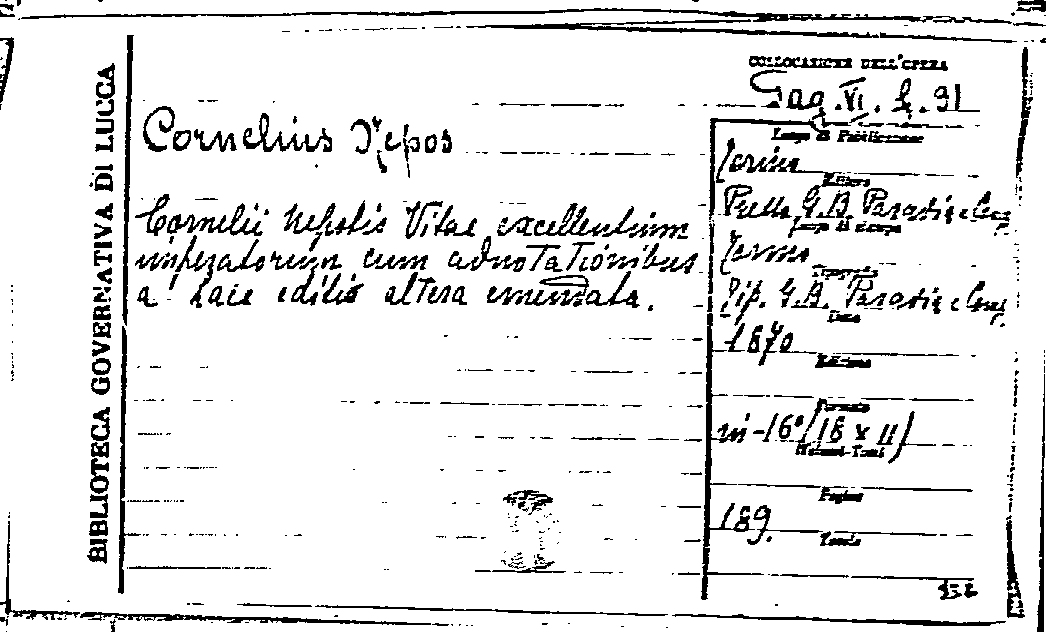 BIBLIOTECA GOVERNATIVA DI LUCCA
COLLOCAZIONE DELL'OPERA
Pag. VI. h. 91
Cornelius Nepos
Cornelii Nepotis Vitae excellentium
imperatorum cum adnotationibus
a' editio altera emendata.
Luogo di Pubblicazione
Torino
Editore
G.B. Paravia e Comp.
Luogo di stampa
Torino
Tipografia
Tip. G.B. Paravia e Comp.
Data
1870
Edizione
Formato
in-16° (18 x 11)
Pagine
189.
Tavole